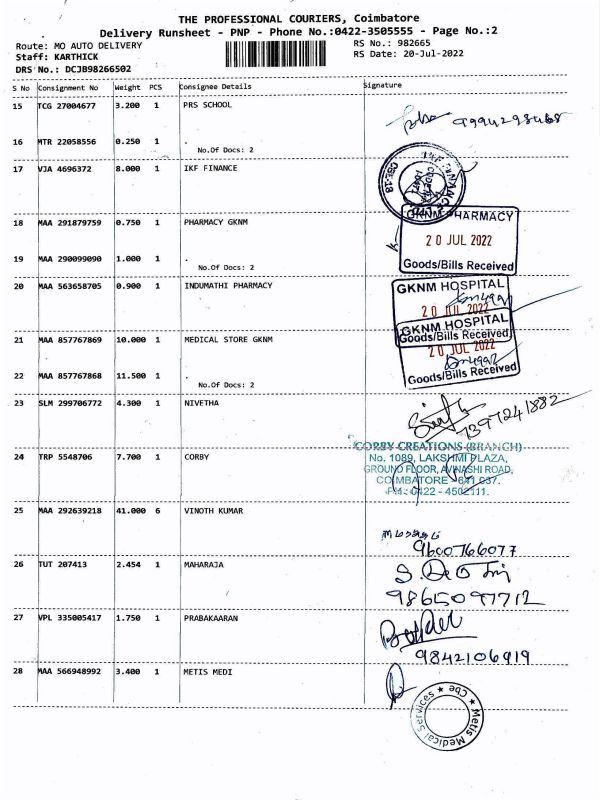 THE PROFESSIONAL COURIERS, Coimbatore
Delivery Runsheet - PNP - Phone No.:0422-3505555 - Page No.:2
Route: MO AUTO DELIVERY
RS No.: 982665
Staff: KARTHICK
RS Date: 20-Jul-2022
DRS No.: DCJB98266502
S No Consignment No Weight PCS Consignee Details Signature
15 TCG 27004677 3.200 1 PRS SCHOOL
16 MTR 22058556 0.250 1 .
No.Of Docs: 2
17 VJA 4696372 8.000 1 IKF FINANCE
IKF FINANCE
CBE-18
18 MAA 291879759 0.750 1 PHARMACY GKNM
GKNM PHARMACY
20 JUL 2022
Goods/Bills Received
19 MAA 290099090 1.000 1 .
No.Of Docs: 2
20 MAA 563658705 0.900 1 INDUMATHI PHARMACY
GKNM HOSPITAL
20 JUL 2022
GKNM HOSPITAL
Goods/Bills Received
21 MAA 857767869 10.000 1 MEDICAL STORE GKNM
20 JUL 2022
Goods/Bills Received
22 MAA 857767868 11.500 1 .
No.Of Docs: 2
23 SLM 299706772 4.300 1 NIVETHA
7397241882
CORBY CREATIONS (BRANCH)
24 TRP 5548706 7.700 1 CORBY
No. 1089, LAKSHMI PLAZA,
GROUND FLOOR, AVINASHI ROAD,
COIMBATORE - 641 037.
PH: 0422 - 4502111.
25 MAA 292639218 41.000 6 VINOTH KUMAR
9600766077
26 TUT 207413 2.454 1 MAHARAJA
9865097712
27 VPL 335005417 1.750 1 PRABAKAARAN
9842106919
28 MAA 566948992 3.400 1 METIS MEDI
Metis Medical Services
Cbe